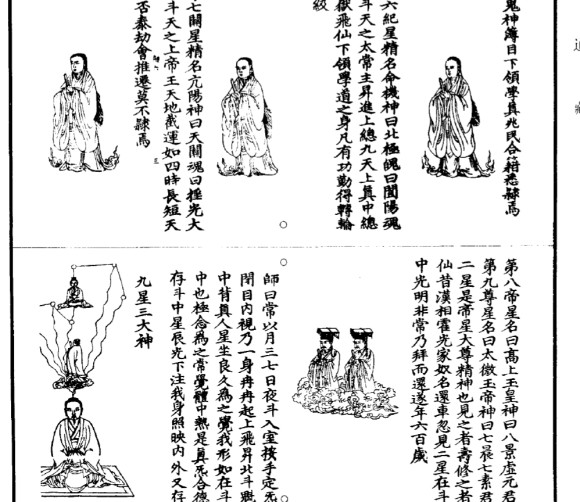 鬼神簿目下領學真兆民合籍悉隸焉
六紀星精名命機神曰北極魄曰闓陽魂
斗天之太常主昇進上總九天上真中總
嶽飛仙下領學道之身凡有功勤得轉輪
七關星精名亢陽神曰天關魂曰極光大
斗天之上帝王天地截運如四時長短天
否泰劫會推遷莫不隸焉
第八帝星名曰高上玉皇神曰八景虛元君
第九尊星名曰太微玉帝神曰七晨七素君
二星是帝星大尊精神也見之者壽修之者
仙昔漢相霍光家奴名還車忽見二星在斗
中光明非常乃拜而還遂年六百歲
師曰常以月三七日夜半入室按手定炁
閉目內視乃一身冉冉起上飛昇北斗魁
中背真人星坐良久為之覺我形如在斗
中也極念為之常覺體中熱是真炁合德
存斗中星辰光下注我身照映內外又存
九星三大神